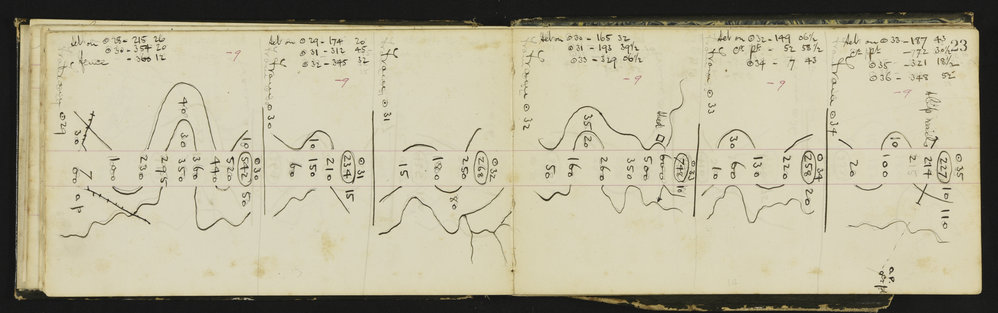 Set on ⊙29 - 215 26
⊙30 - 354 20
fence - 300 12
-9
Traverse ⊙29
30
60
100
230
295
350
360
440
520
(542)
⊙30
40
30
10
50
Set on ⊙29 - 174 20
⊙31 - 312 45
⊙32 - 345 32
-9
from ⊙30
60
150
210
(234)
⊙31
10
15
from ⊙31
15
180
250
(268)
⊙32
80
Set on ⊙30 - 165 32
⊙31 - 193 39½
⊙33 - 329 06½
-9
from ⊙32
50
160
260
350
500
600
(748)
⊙33
35
20
10
shed
Set on ⊙32 - 149 06½
- 52 58½
⊙34 - 7 43
-9
from ⊙33
10
60
130
220
(258)
⊙34
30
20
Set on ⊙33 - 187 43
- 72 30½
⊙35 - 321 18½
⊙36 - 348 52
-9
23
from ⊙34
20
100
214
(227)
⊙35
10
10
110
slip rails